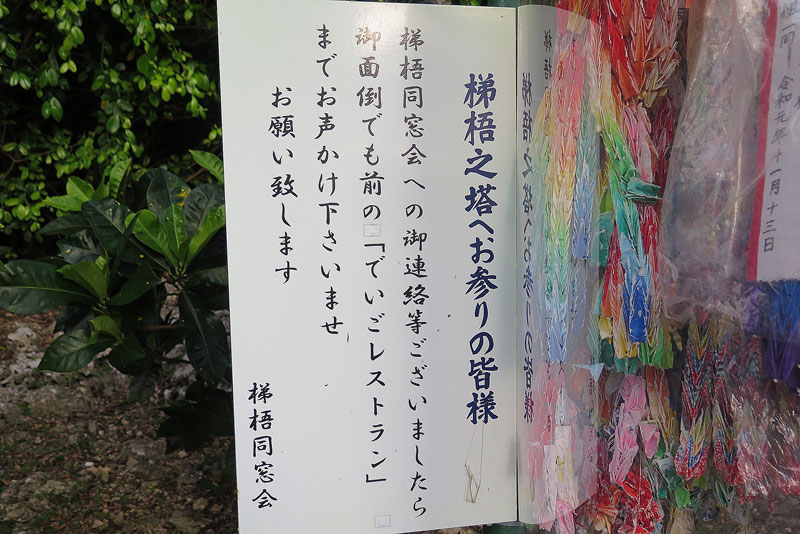 梯梧之塔へお参りの皆様
梯梧同窓会への御連絡等ございましたら
御面倒でも前の「でいごレストラン」
までお声かけ下さいませ
お願い致します
梯梧同窓会
一同
令和元年十一月十三日
梯梧之塔へお参りの皆様